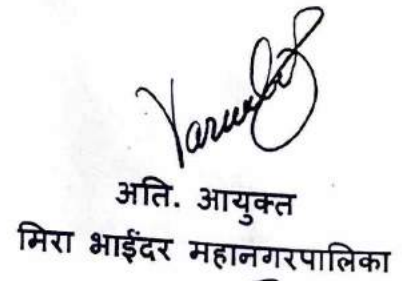 अति. आयुक्त
मिरा भाईंदर महानगरपालिका